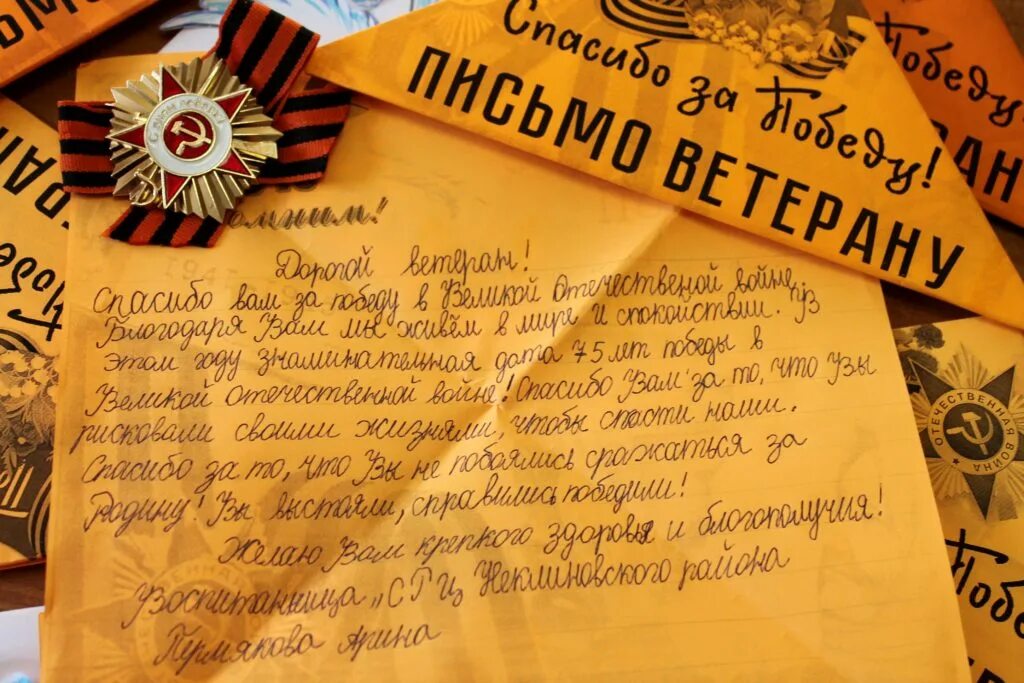 Спасибо за Победу!
ПИСЬМО ВЕТЕРАНУ
Победу
Дорогой ветеран!
Спасибо вам за победу в Великой Отечественой войне,
Благодаря Вам мы живём в мире и спокойствии. В
этом году знаминательная дата 75 лет победы в
Великой отечественной войне! Спасибо Вам за то, что Вы
рисковали своими жизнями, чтобы спасти наши.
Спасибо за то, что Вы не побоялись сражаться за
Родину! Вы выстояли, справились победили!
Желаю Вам крепкого здоровья и благополучия!
Воспитанница „СРЦ Неклиновского района
Пермякова Арина
ОТЕЧЕСТВЕННАЯ ВОЙНА